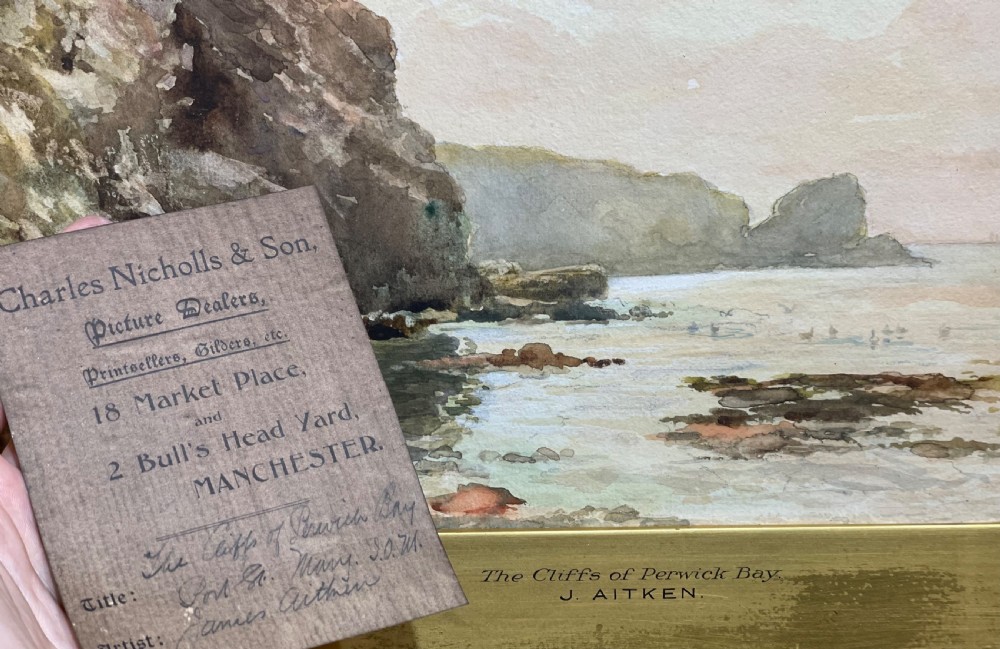 Charles Nicholls & Son,
Picture Dealers,
Printsellers, Gilders, etc.
18 Market Place,
and
2 Bull's Head Yard,
MANCHESTER.
The Cliffs of Perwick Bay
Title: Port St. Mary. I.O.M.
Artist: James Aitken
The Cliffs of Perwick Bay,
J. AITKEN.